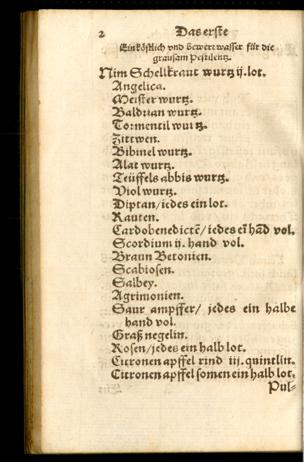 2 Das erste
Ein köstlich vnd bewert wasser für die
grausam Pestilentz.
Nim Schellkraut wurtz ij. lot.
Angelica.
Meister wurtz.
Baldrian wurtz.
Tormentil wurtz.
Zittwen.
Bibinel wurtz.
Alat wurtz.
Teüffels abbis wurtz.
Viol wurtz.
Diptan/ iedes ein lot.
Rauten.
Cardobenedictē/ iedes eī hād vol.
Scordium ij. hand vol.
Braun Betonien.
Scabiosen.
Salbey.
Agrimonien.
Saur ampffer/ jedes ein halbe
hand vol.
Graß negelin.
Rosen/ jedes ein halb lot.
Citronen apffel rind iij. quintlin.
Citronen apffel somen ein halb lot.
Pul-